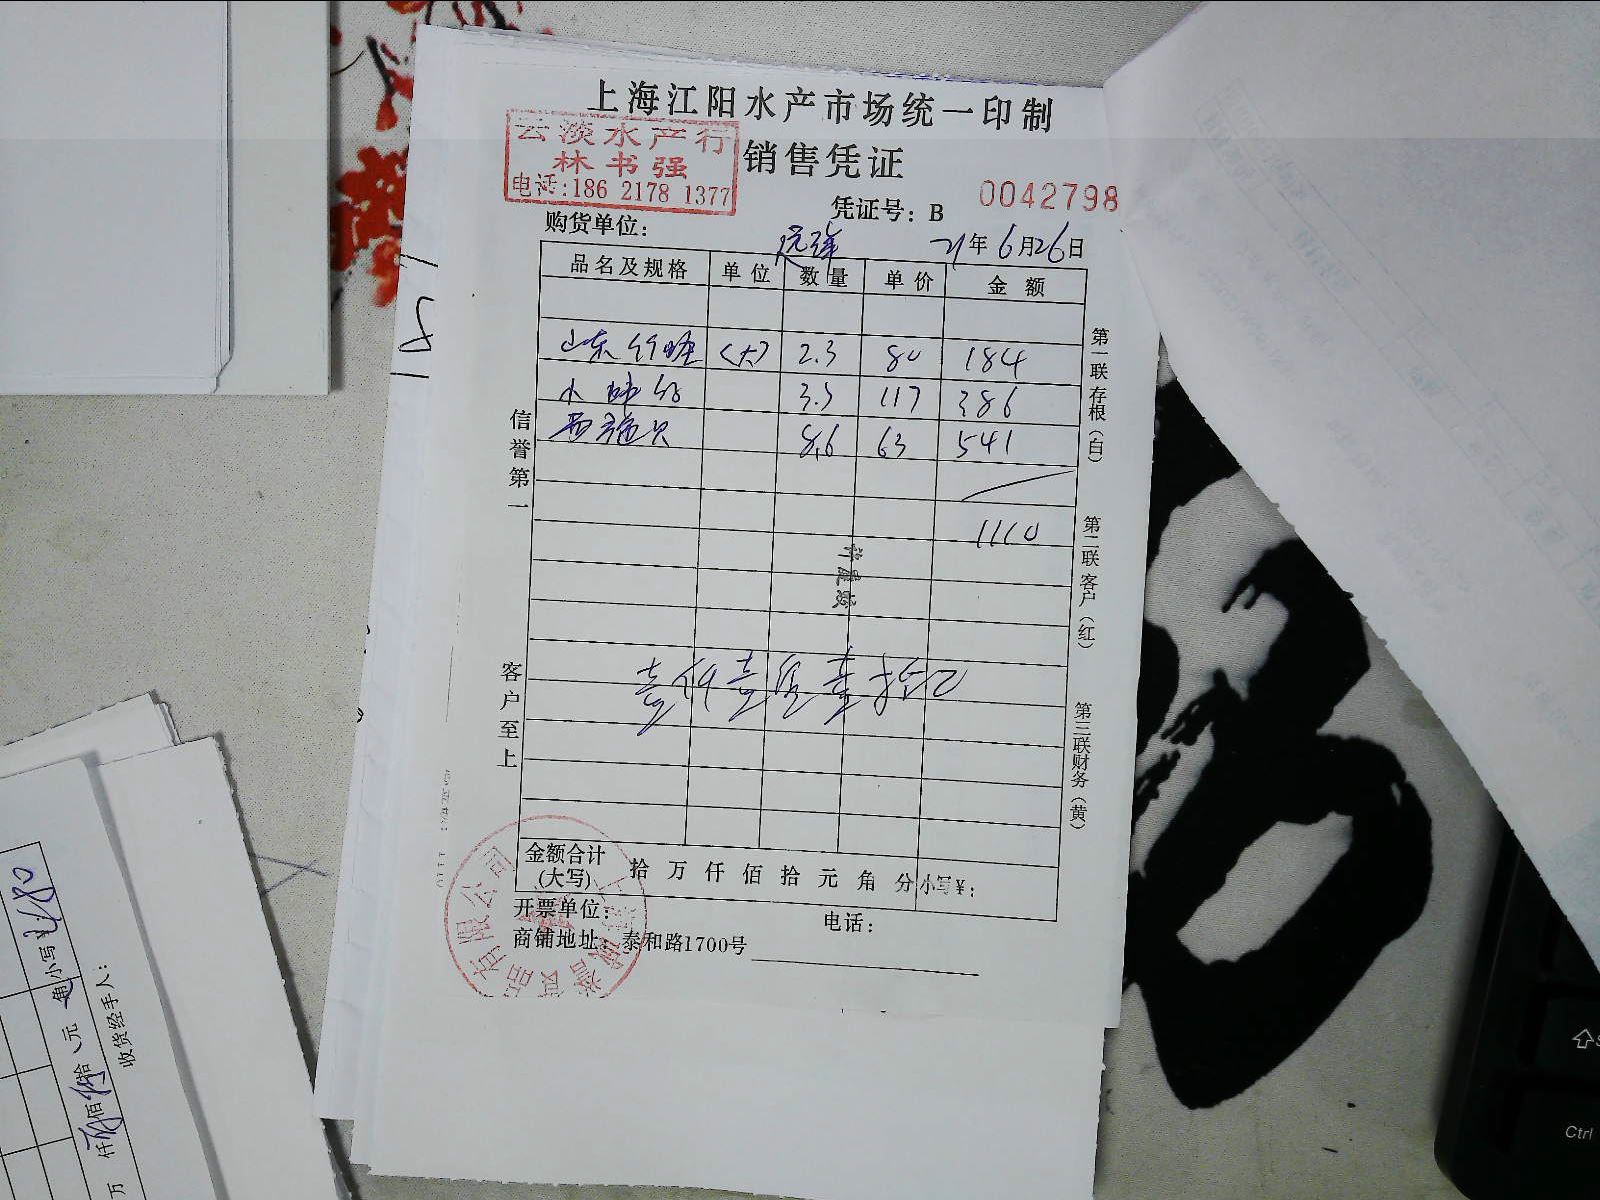 上海江阳水产市场统一印制
云淡水产行
林书强
电话:186 2178 1377
销售凭证
0042798
凭证号：B
购货单位：
21年6月26日
品名及规格 单位 数量 单价 金额
山东竹蛏 (大) 2.3 80 184
小 3.3 117 386
西施贝 8.6 63 541
1110
壹仟壹佰壹拾元
信誉第一
客户至上
第一联存根(白)
第二联客户(红)
第三联财务(黄)
金额合计
(大写) 拾 万 仟 佰 拾 元 角 分 小写¥:
开票单位：
电话：
商铺地址：泰和路1700号
有限公司
小写¥
480
收货经手人：
Ctrl